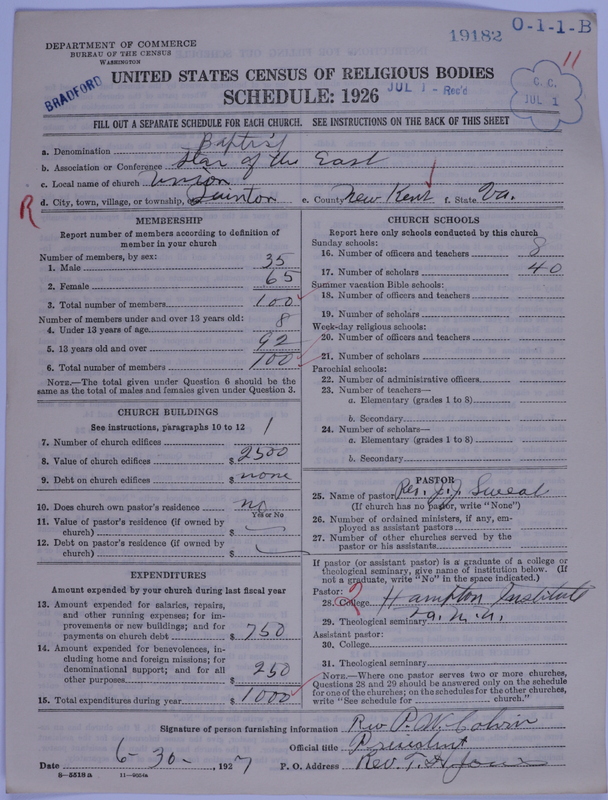 19182 O-1-1-B
DEPARTMENT OF COMMERCE
BUREAU OF THE CENSUS
WASHINGTON
BRADFORD
JUL 1 - Rec'd
C. C.
JUL 1
11
UNITED STATES CENSUS OF RELIGIOUS BODIES
SCHEDULE: 1926
FILL OUT A SEPARATE SCHEDULE FOR EACH CHURCH. SEE INSTRUCTIONS ON THE BACK OF THIS SHEET
a. Denomination Baptist
b. Association or Conference Star of the East
c. Local name of church Union
R d. City, town, village, or township, e. County New Kent f. State Va.
MEMBERSHIP
Report number of members according to definition of
member in your church
Number of members, by sex:
1. Male 35
2. Female 65
3. Total number of members 100
Number of members under and over 13 years old:
4. Under 13 years of age 8
5. 13 years old and over 92
6. Total number of members 100
NOTE.—The total given under Question 6 should be the
same as the total of males and females given under Question 3.
CHURCH BUILDINGS
See instructions, paragraphs 10 to 12
7. Number of church edifices 1
8. Value of church edifices $ 2500
9. Debt on church edifices $ none
10. Does church own pastor's residence no
Yes or No
11. Value of pastor's residence (if owned by
church) $
12. Debt on pastor's residence (if owned by
church) $
EXPENDITURES
Amount expended by your church during last fiscal year
13. Amount expended for salaries, repairs,
and other running expenses; for im-
provements or new buildings; and for
payments on church debt $ 750
14. Amount expended for benevolences, in-
cluding home and foreign missions; for
denominational support; and for all
other purposes $ 250
15. Total expenditures during year $ 1000
CHURCH SCHOOLS
Report here only schools conducted by this church
Sunday schools:
16. Number of officers and teachers 8
17. Number of scholars 40
Summer vacation Bible schools:
18. Number of officers and teachers
19. Number of scholars
Week-day religious schools:
20. Number of officers and teachers
21. Number of scholars
Parochial schools:
22. Number of administrative officers
23. Number of teachers—
a. Elementary (grades 1 to 8)
b. Secondary
24. Number of scholars—
a. Elementary (grades 1 to 8)
b. Secondary
PASTOR
25. Name of pastor Rev. J. J.
(If church has no pastor, write "None")
26. Number of ordained ministers, if any, em-
ployed as assistant pastors
27. Number of other churches served by the
pastor or his assistants
If pastor (or assistant pastor) is a graduate of a college or
theological seminary, give name of institution below. (If
not a graduate, write "No" in the space indicated.)
Pastor:
28. College Hampton Institute
29. Theological seminary
Assistant pastor:
30. College
31. Theological seminary
NOTE.—Where one pastor serves two or more churches,
Questions 28 and 29 should be answered only on the schedule
for one of the churches; on the schedules for the other churches,
write "See schedule for church."
Signature of person furnishing information Rev P. W.
Official title President
Date 6-30-, 1927 P. O. Address Rev. T. H. Jones
8-5518 a 11-9054a